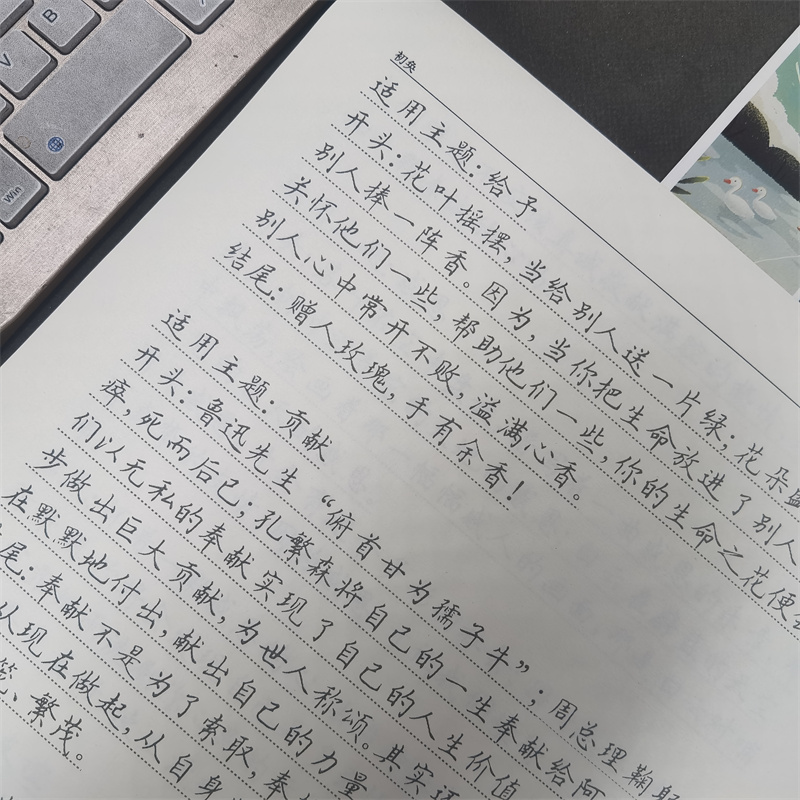 B
V
Win
初奂
适用主题：给予
开头：花叶摇摆，当给别人送一片绿；花朵
别人捧一阵香。因为，当你把生命放进了别人
关怀他们一些，帮助他们一些，你的生命之花便
别人心中常开不败，溢满心香。
结尾：赠人玫瑰，手有余香！
适用主题：贡献
开头：鲁迅先生“俯首甘为孺子牛”；周总理鞠
瘁，死而后已；孔繁森将自己的一生奉献给阿
们以无私的奉献实现了自己的人生价值
步做出巨大贡献，为世人称颂。其实
在默默地付出，献出自己的力量
尾：奉献不是为了索取，奉
从现在做起，从自身
繁茂。